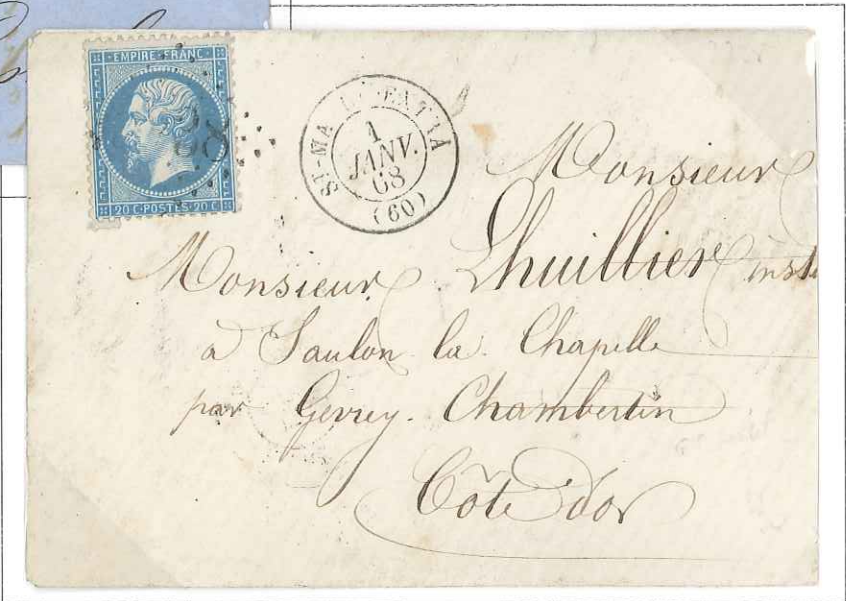 EMPIRE FRANC
28
20 C · POSTES · 20 C
ST-MA
1
JANV.
68
(60)
Monsieur
Monsieur Lhuillier inst
à Saulon la Chapelle
par Gevrey-Chambertin
Côte d'or